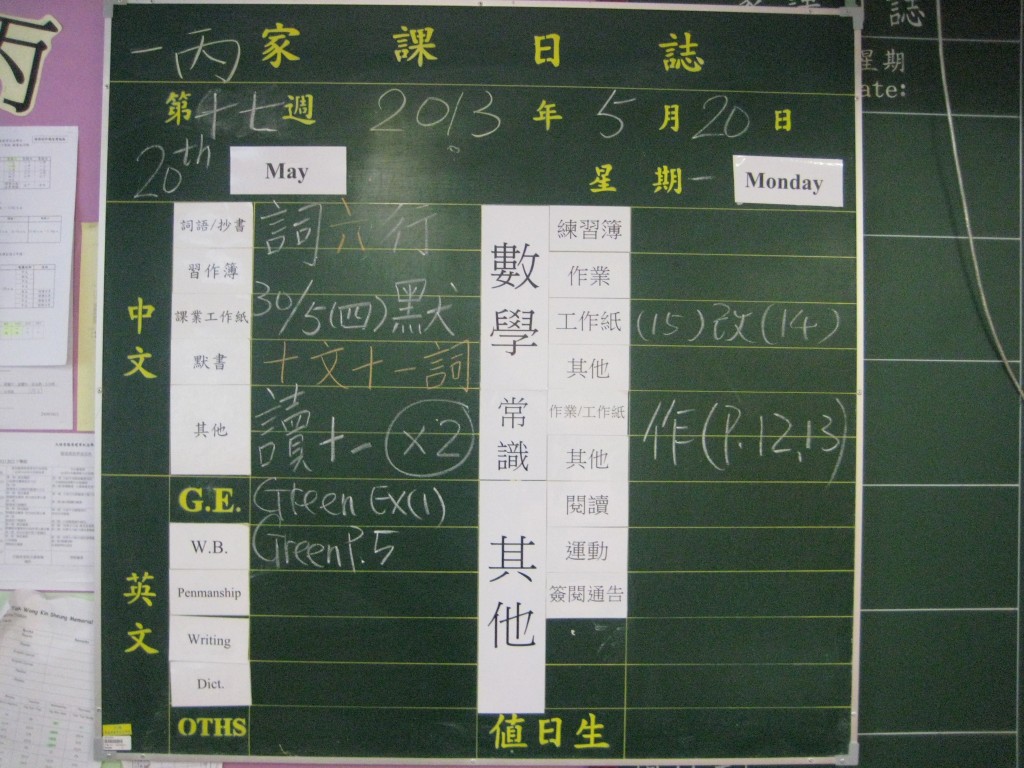 丙
誌
星期
ate:
一丙 家課日誌
第十七週 2013年5月20日
20th May 星期一 Monday
中文
詞語/抄書 詞六行
習作簿
課業工作紙 30/5(四)默
默書 十文十一詞
其他 讀十一 ×2
英文
G.E. Green Ex(1)
W.B. Green P.5
Penmanship
Writing
Dict.
OTHS
數學
練習簿
作業
工作紙 (15)改(14)
其他
常識
作業/工作紙 作(P.12,13)
其他
其他
閱讀
運動
簽閱通告
值日生